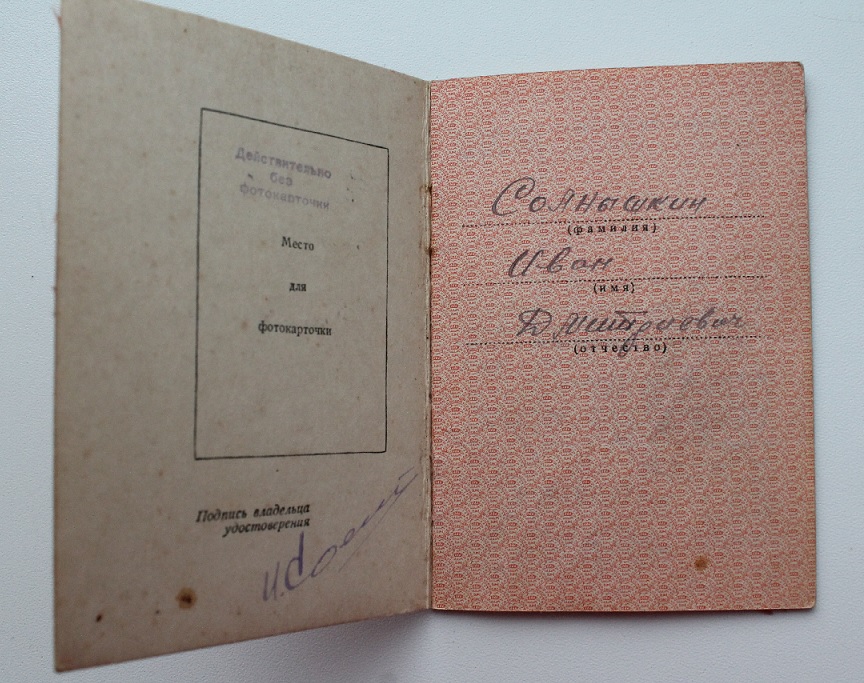 Действительно
без
фотокарточки
Место
для
фотокарточки
Подпись владельца
удостоверения
Солнышкин
(фамилия)
Иван
(имя)
Дмитриевич
(отчество)